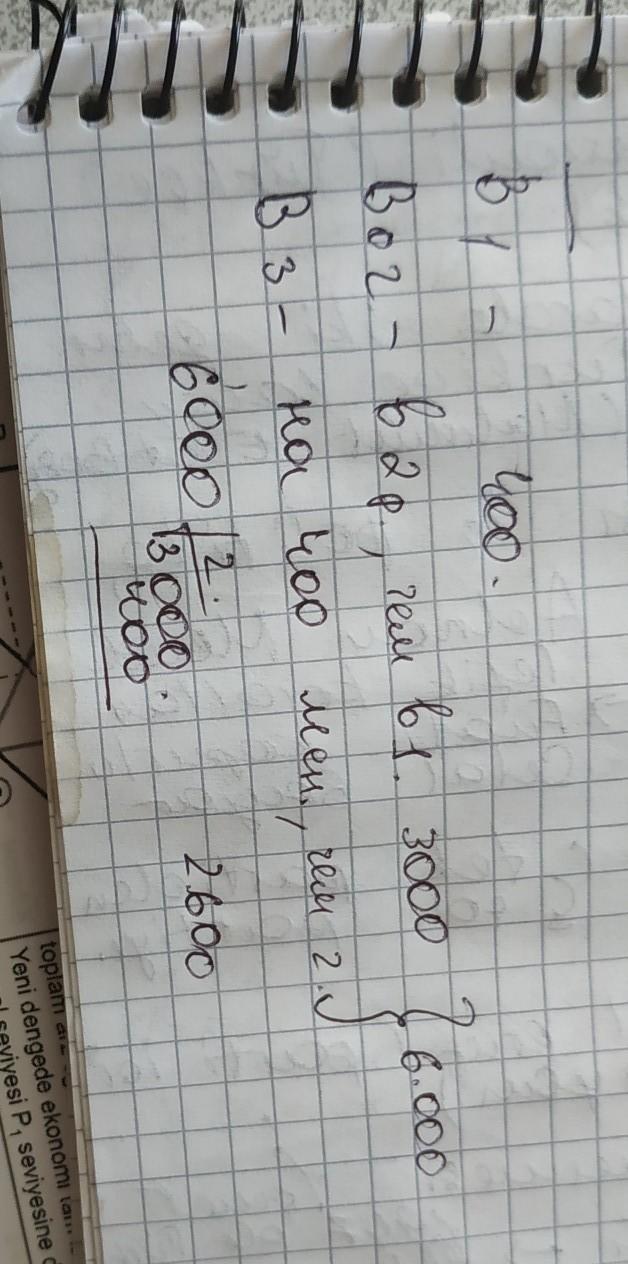 В 1 - 400.
Во 2 - в 2 р., чем в 1. 3000 } 6.000
В 3 - на 400 мен., чем 2.
6000 | 2
3000 2600
400
Yeni dengede ekonomi
seviyesi P₁ seviyesine